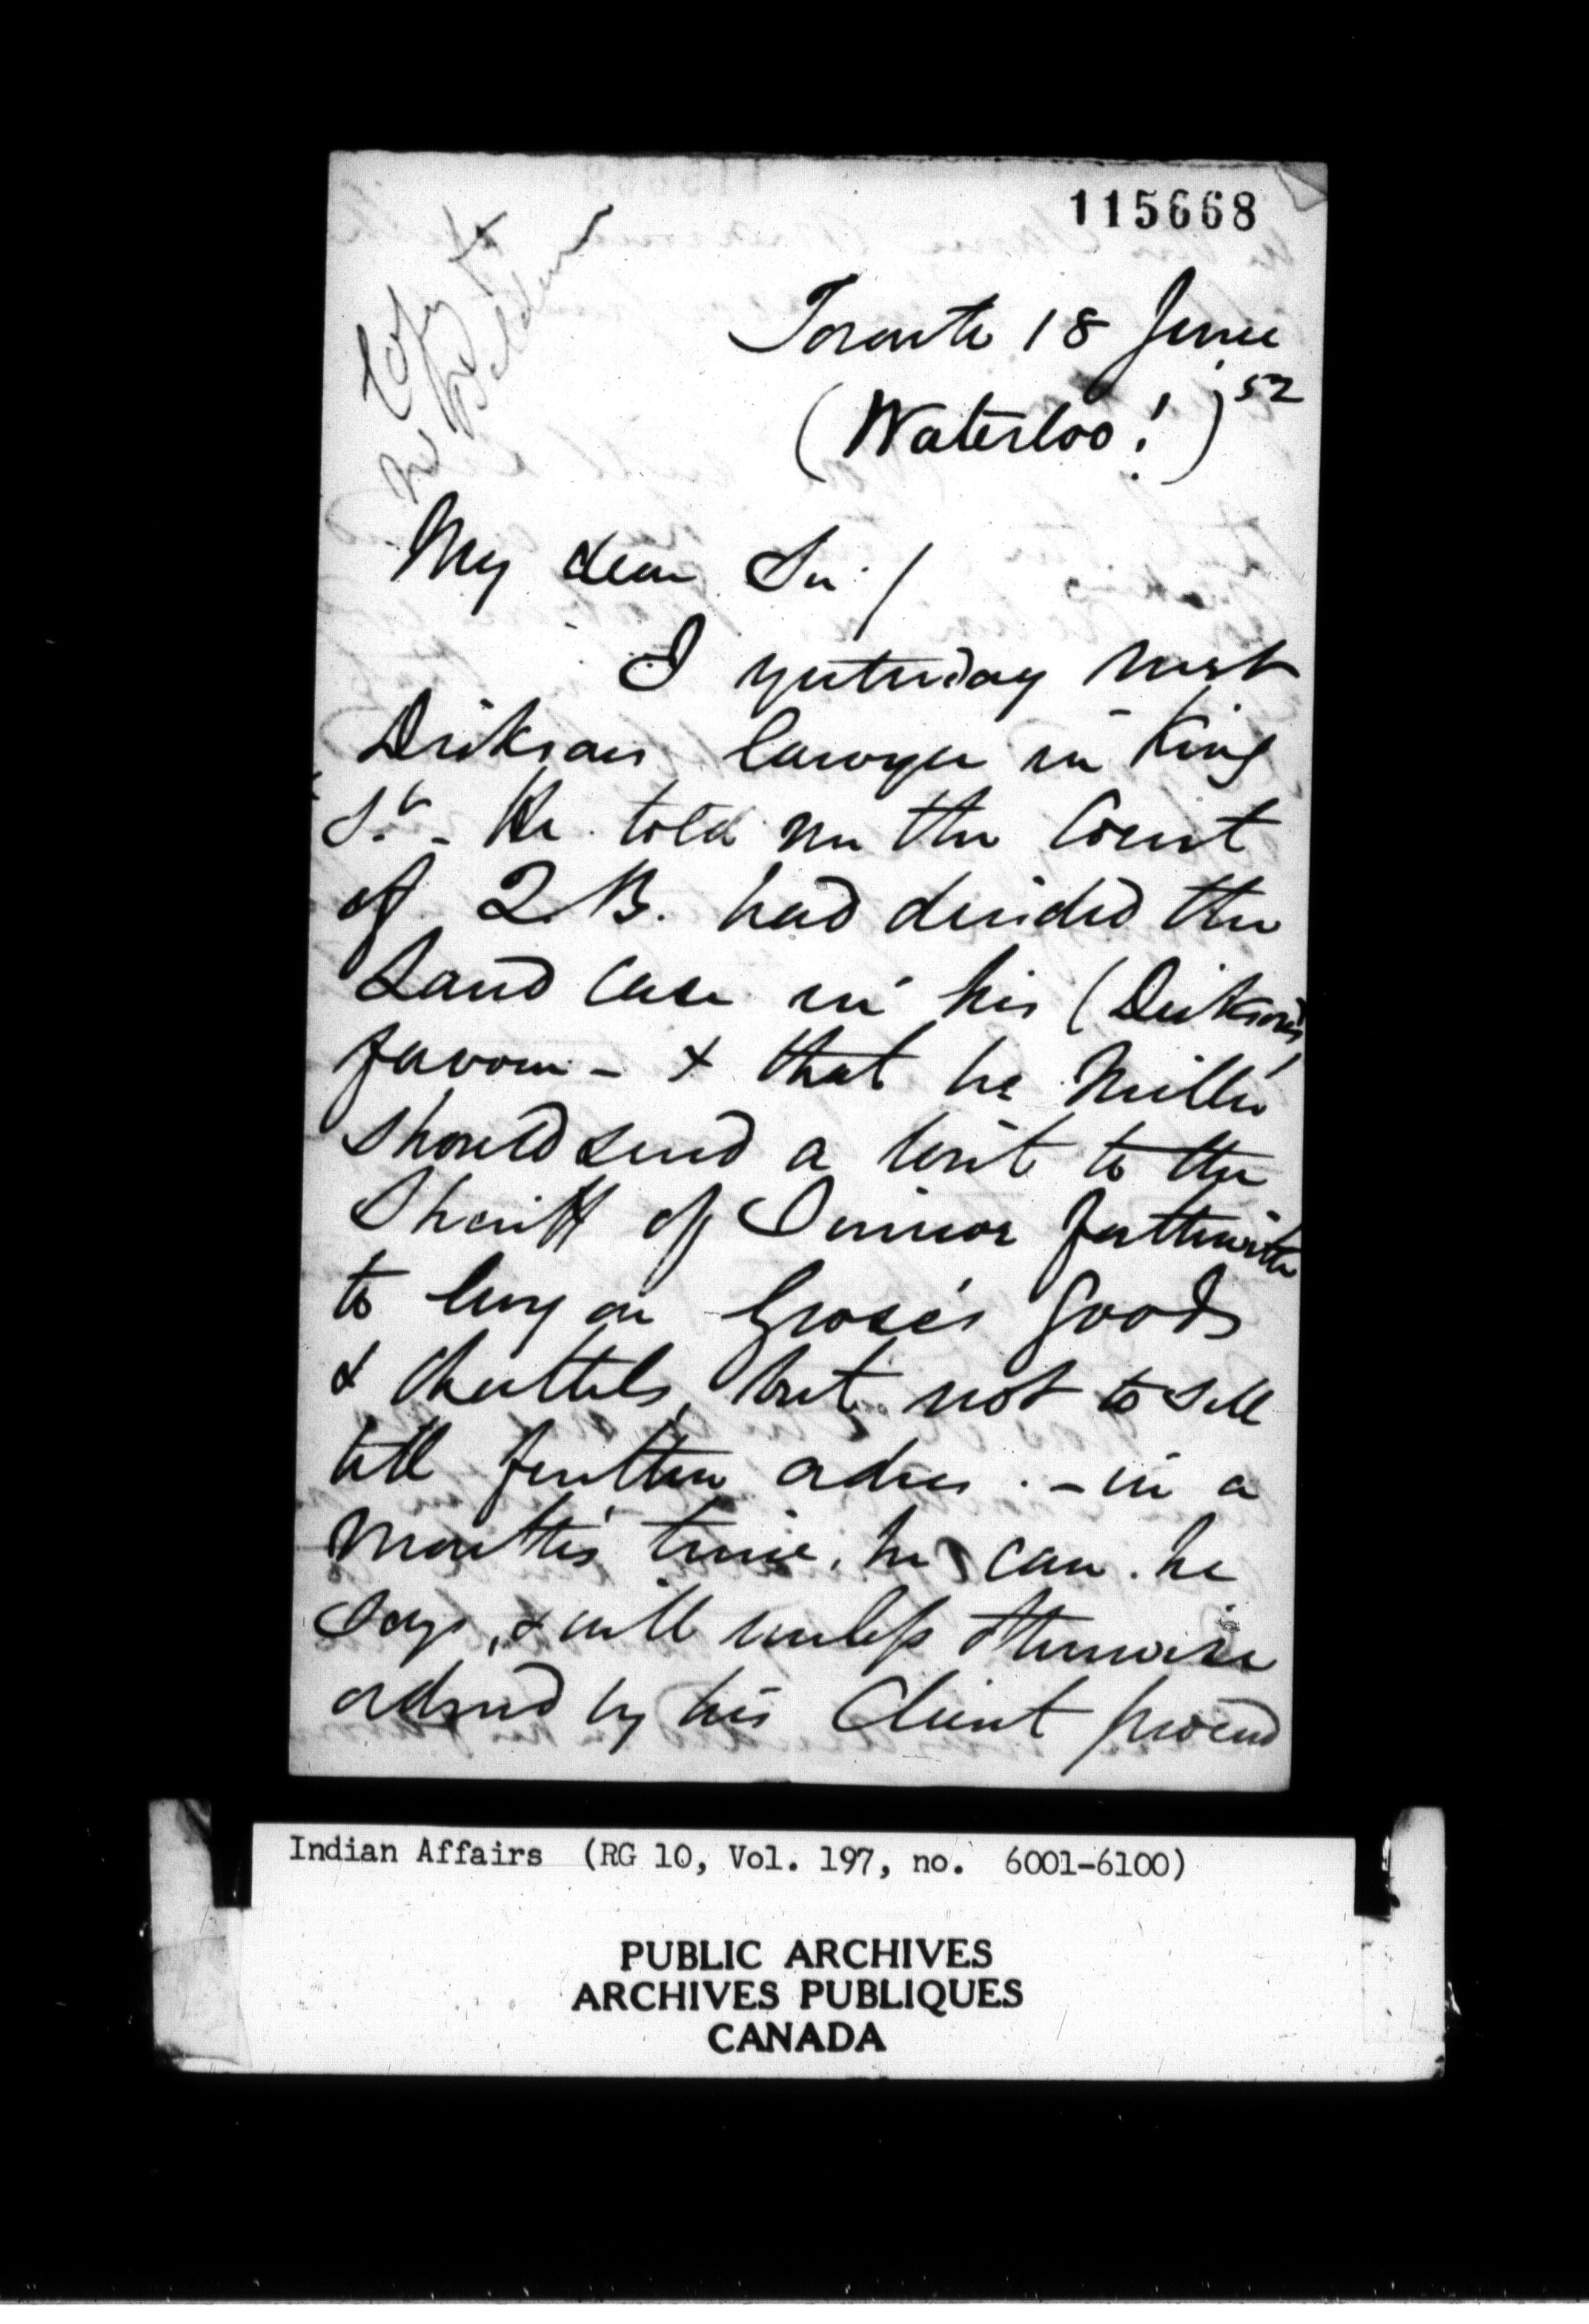 115668
Copy to
Toronto 18 June
(Waterloo!) 52
My dear Sir /
I yesterday met
Dicksons lawyer in King
St. - He told me the Court
of Q.B. had decided the
Land case in his (Dicksons)
favour - & that he Miller
should send a writ to the
Sheriff of Simcoe forthwith
to levy on Grose's goods
& Chattels, but not to sell
till further orders. - in a
month's time, he can, he
says, & will unless otherwise
ordered by his Client proceed
Indian Affairs (RG 10, Vol. 197, no. 6001-6100)
PUBLIC ARCHIVES
ARCHIVES PUBLIQUES
CANADA